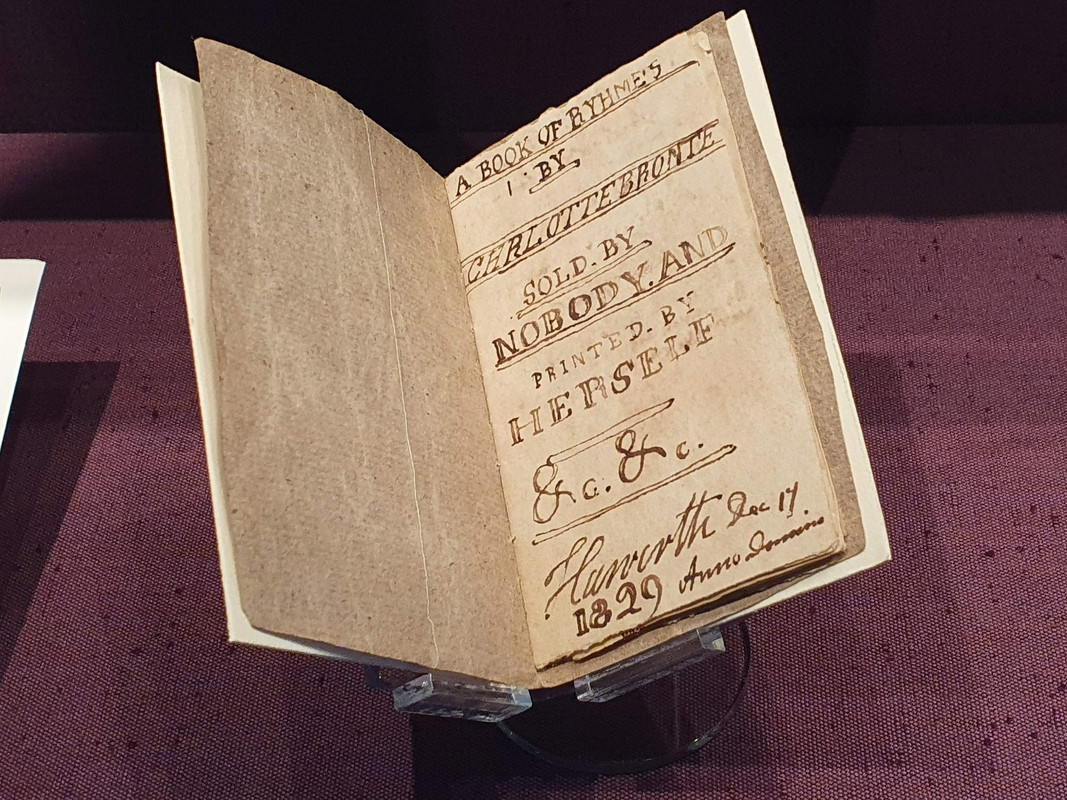 A BOOK OF RYHMES
BY
CHRLOTTE BRONTE
SOLD. BY
NOBODY. AND
PRINTED. BY
HERSELF
&c. &c.
Haworth Dec 17.
1829 Anno Domino